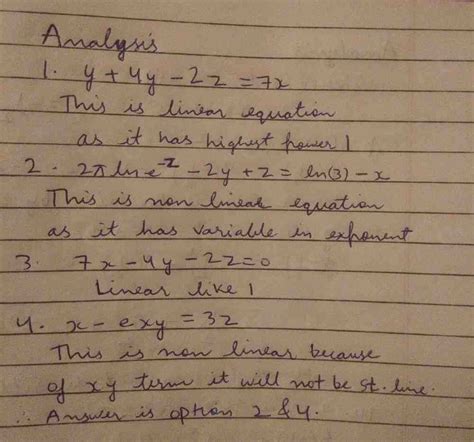 Analysis
1. y + 4y - 2z = 7x
This is linear equation
as it has highest power 1
2. 2π ln e^-z - 2y + z = ln(3) - x
This is non linear equation
as it has variable in exponent
3. 7x - 4y - 2z = 0
Linear like 1
4. x - exy = 3z
This is non linear because
of xy term it will not be st. line.
∴ Answer is option 2 & 4.